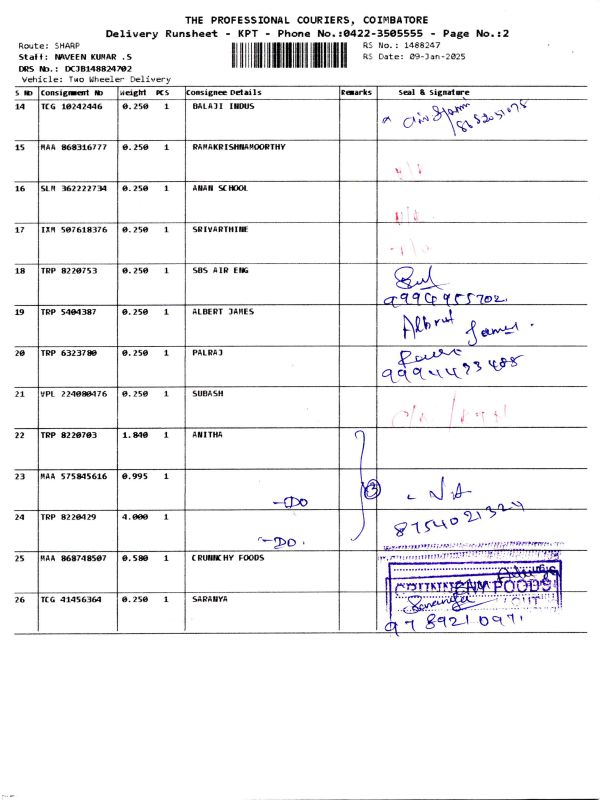 THE PROFESSIONAL COURIERS, COIMBATORE
Delivery Runsheet - KPT - Phone No.:0422-3505555 - Page No.:2
Route: SHARP
RS No.: 1488247
Staff: NAVEEN KUMAR .S
RS Date: 09-Jan-2025
DRS No.: DCJB148824702
Vehicle: Two Wheeler Delivery
S NO Consignment No Weight PCS Consignee Details Remarks Seal & Signature
14 TCG 10242446 0.250 1 BALAJI INDUS
15 MAA 868316777 0.250 1 RAMAKRISHNAMOORTHY
16 SLM 362222734 0.250 1 ANAN SCHOOL
17 IXM 507618376 0.250 1 SRIVARTHINE
18 TRP 8220753 0.250 1 SBS AIR ENG
9994955702
19 TRP 5404387 0.250 1 ALBERT JAMES
Albrut James .
20 TRP 6323780 0.250 1 PALRAJ
9994493488
21 VPL 224080476 0.250 1 SUBASH
22 TRP 8220703 1.840 1 ANITHA
23 MAA 575845616 0.995 1
-DO
3
24 TRP 8220429 4.000 1
-DO.
8754021324
25 MAA 868748507 0.580 1 CRUNNCHY FOODS
FOODS
26 TCG 41456364 0.250 1 SARANYA
9789210971